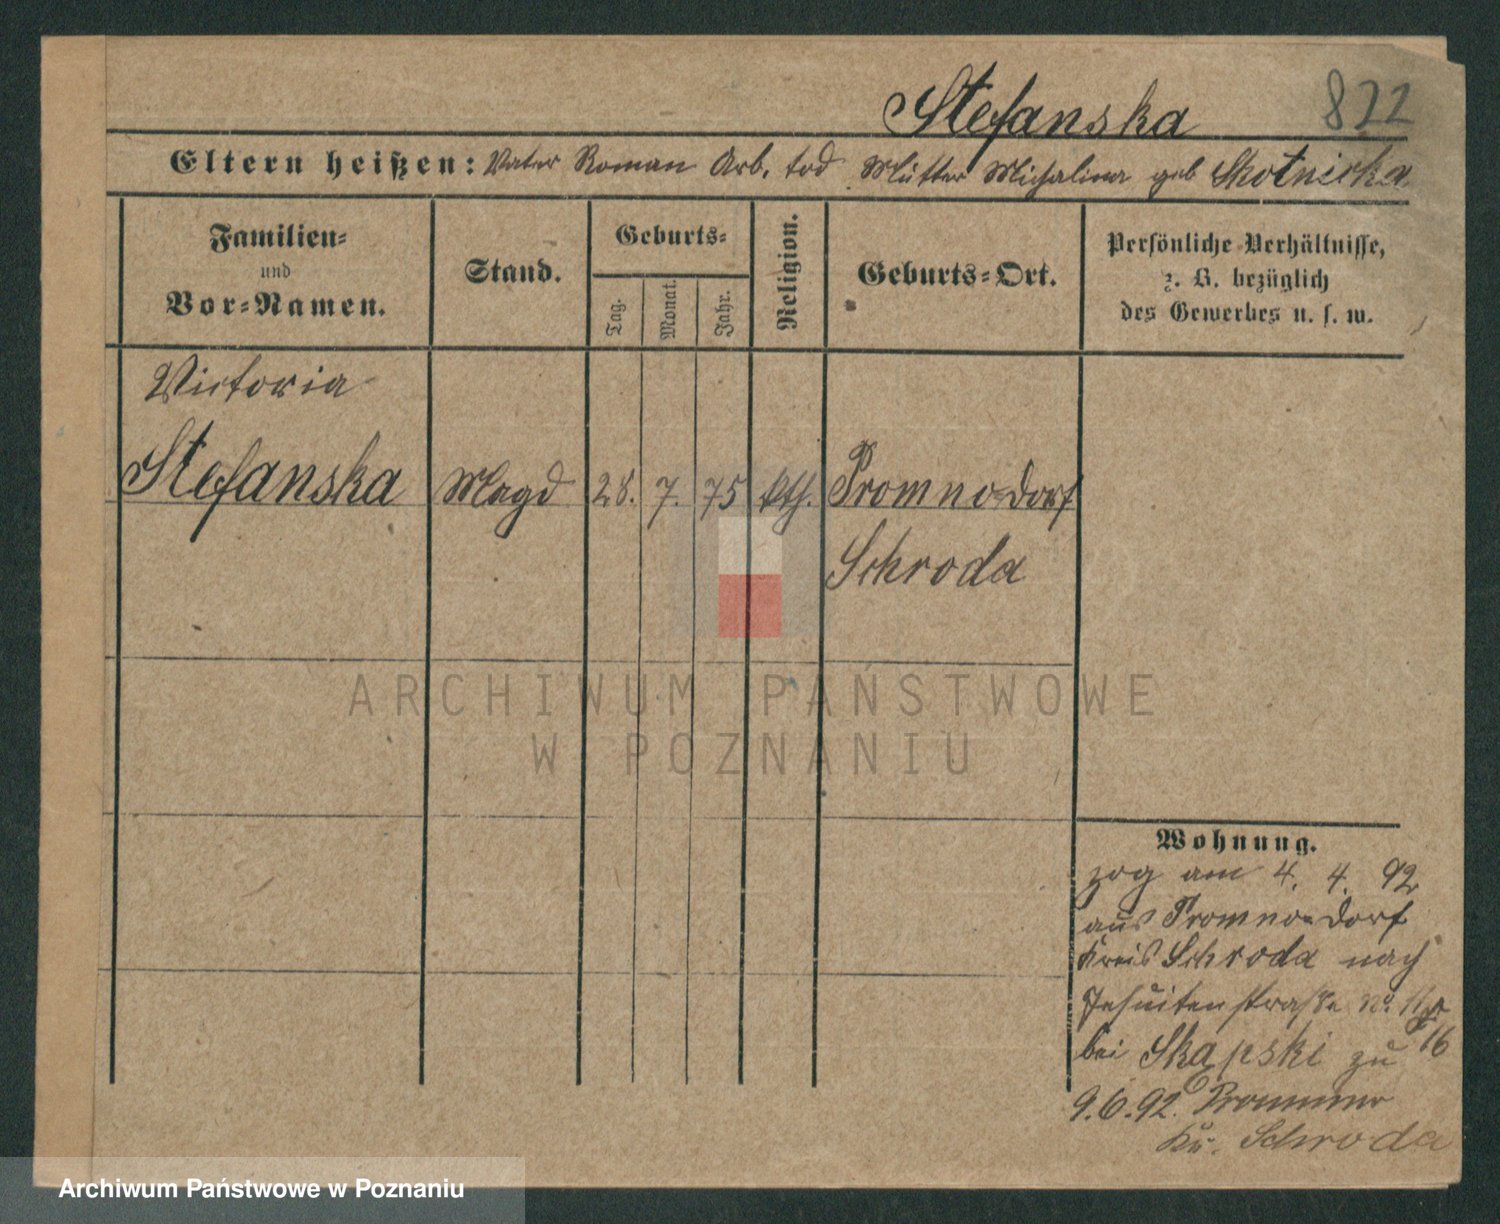 Stefanska 822
Eltern heißen: Vater Roman Arb. tod Mutter Michalina geb Skotnicka
Familien-
und
Vor-Namen.
Stand.
Geburts-
Tag.
Monat.
Jahr.
Religion.
Geburts-Ort.
Persönliche Verhältnisse,
z. B. bezüglich
des Gewerbes u. s. w.
Victoria
Stefanska Magd 28. 7. 75 kth. Promno-Dorf
Schroda
ARCHIWUM PAŃSTWOWE
W POZNANIU
Wohnung.
zog am 4. 4. 92
aus Promno-Dorf
Kreis Schroda nach
Jesuitenstraße No. 11
bei Skapski zu 16
9.6.92.
Kr. Schroda
Archiwum Państwowe w Poznaniu